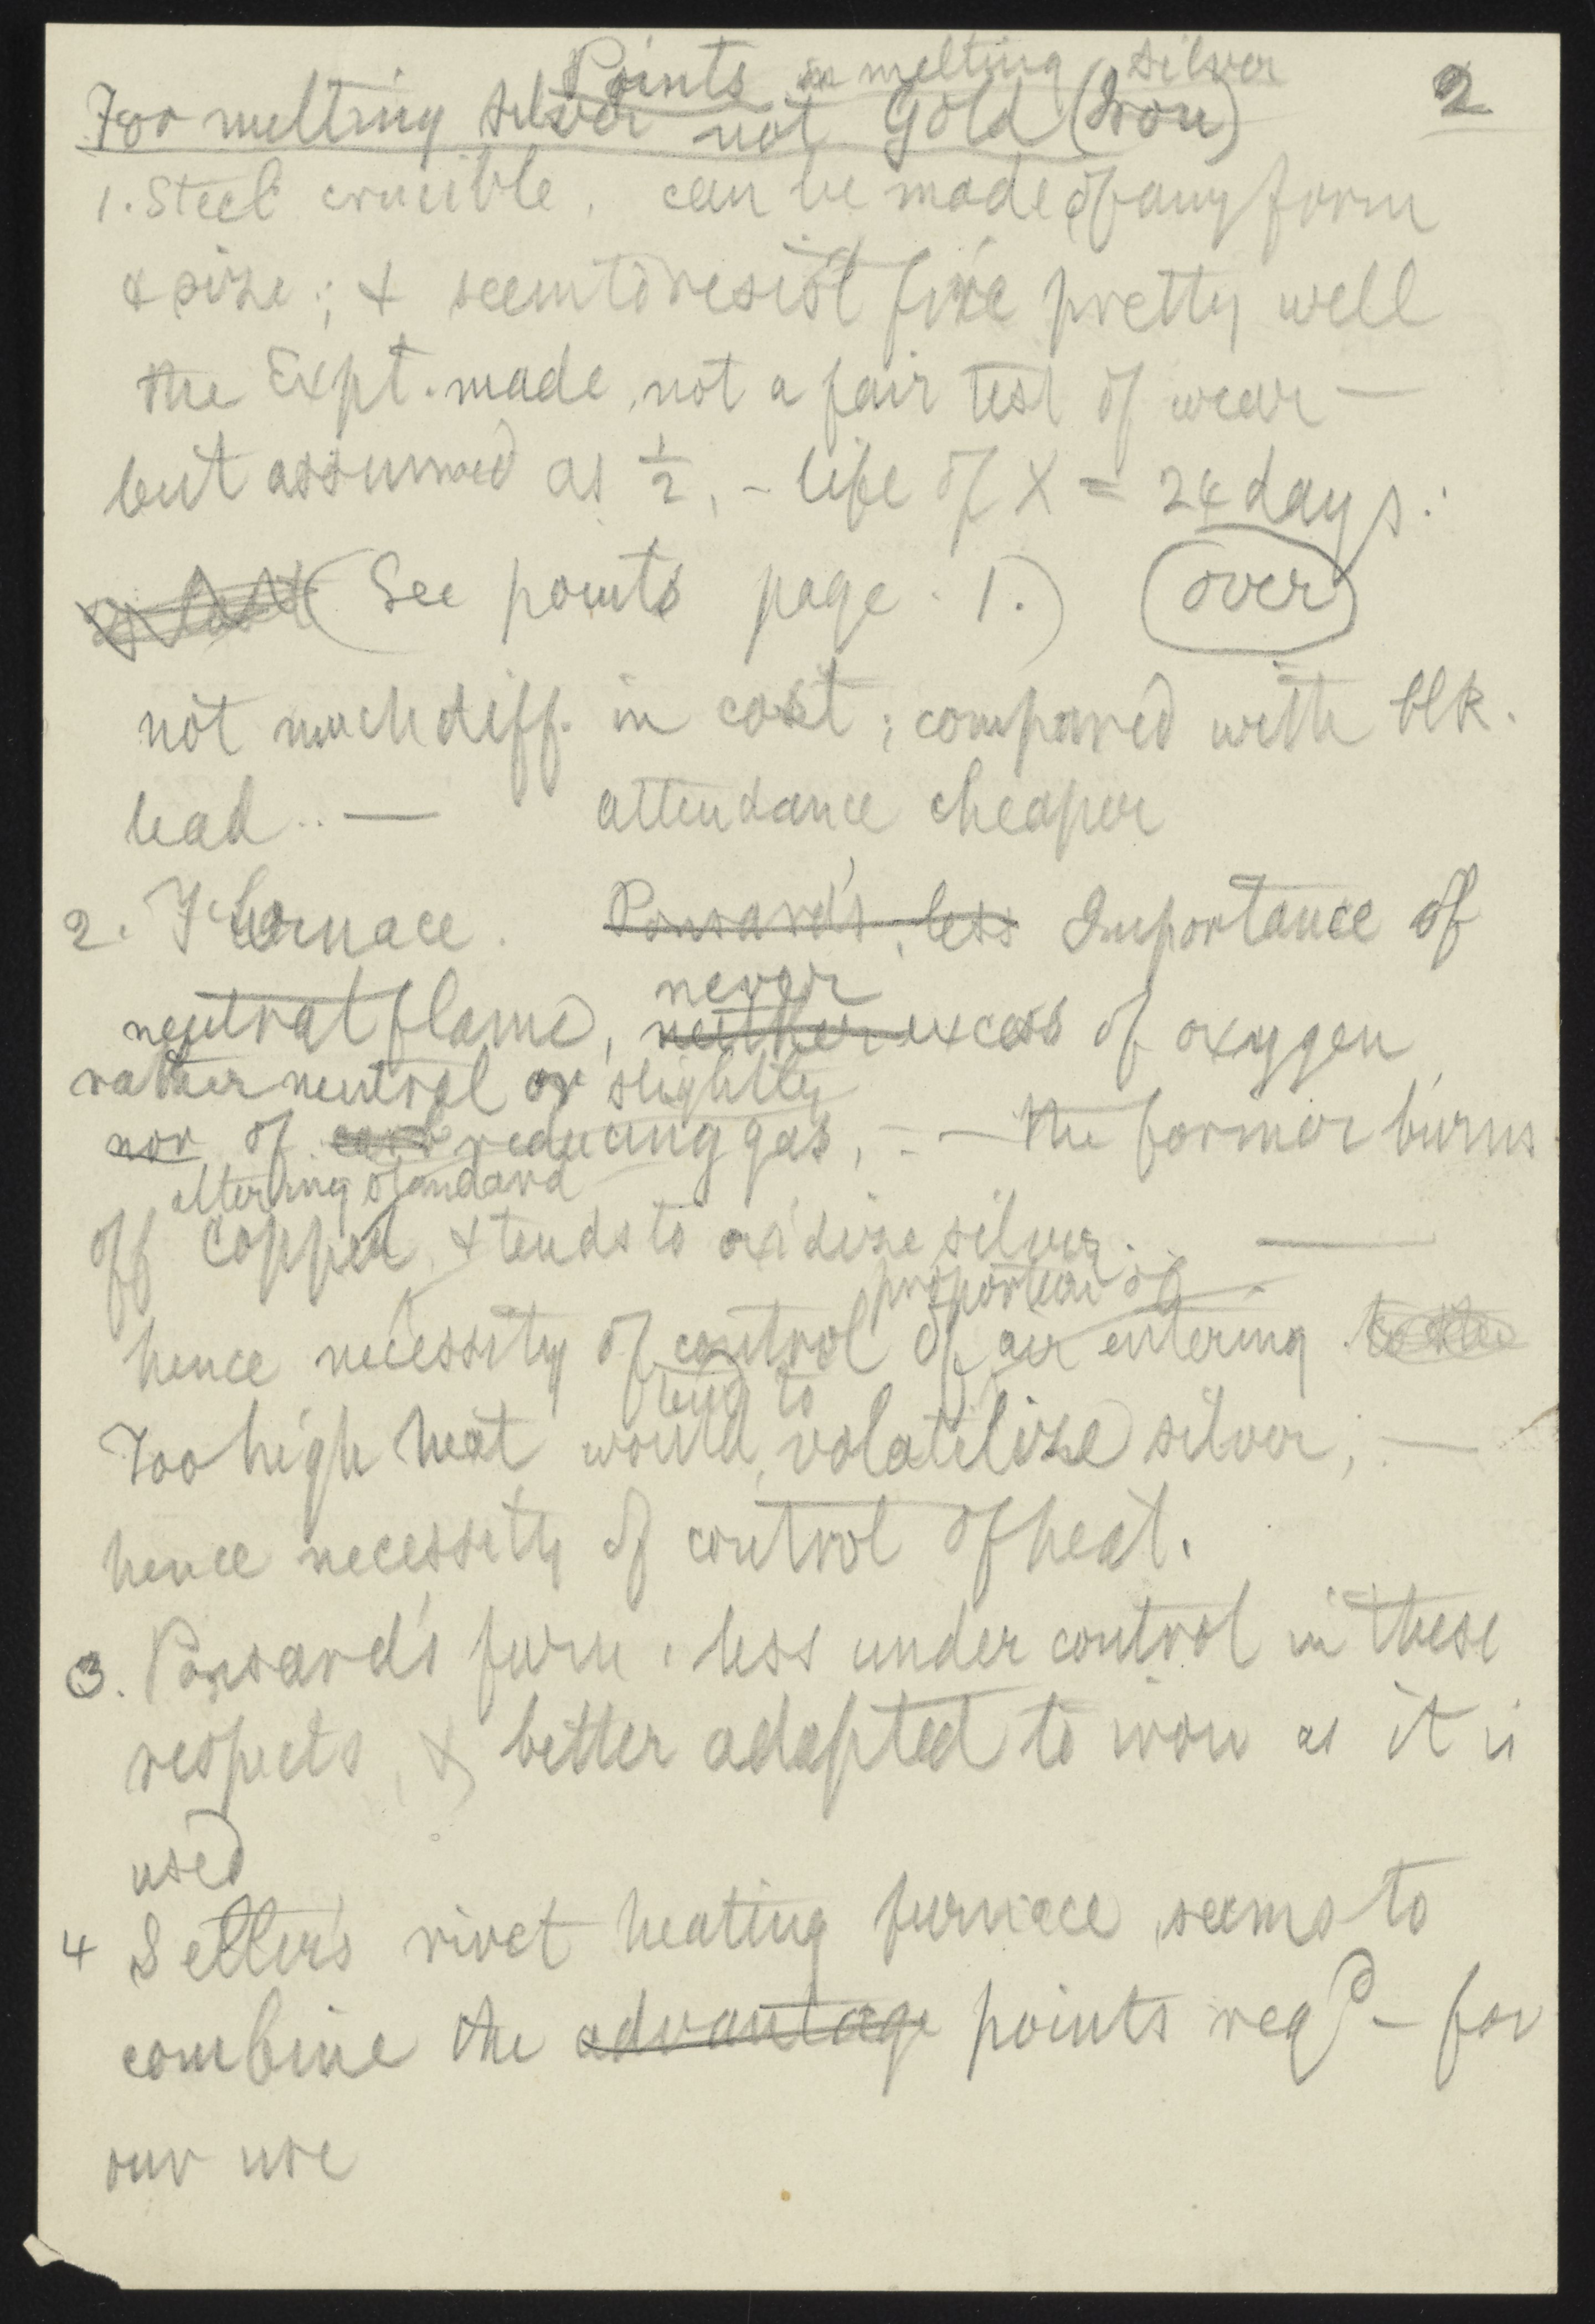 Points in melting silver
2
For melting silver not Gold (Iron)
1. Steel crucible, can be made of any form
& size; & seem to resist fire pretty well
the Expt. made, not a fair test of wear —
but assumed as ½, - life of X = 24 days.:
(See points page 1.) over
not much diff. in cost; compared with blk.
lead .. — attendance cheaper
2. Furnace. Ponsard's, less Importance of
never
neutral flame, neither excess of oxygen
rather neutral or slightly
nor of carb reducing gas, - — the former burns
altering standard
off copper, & tends to oxidize silver. —
proportion of
hence necessity of control of air entering to the
tend to
Too high heat would, volatilize silver, —
hence necessity of control of heat.
3. Ponsard's furn. less under control in these
respects, & better adapted to iron as it is
used
4 Seller's rivet heating furnace seems to
combine the advantage points reqd - for
our use